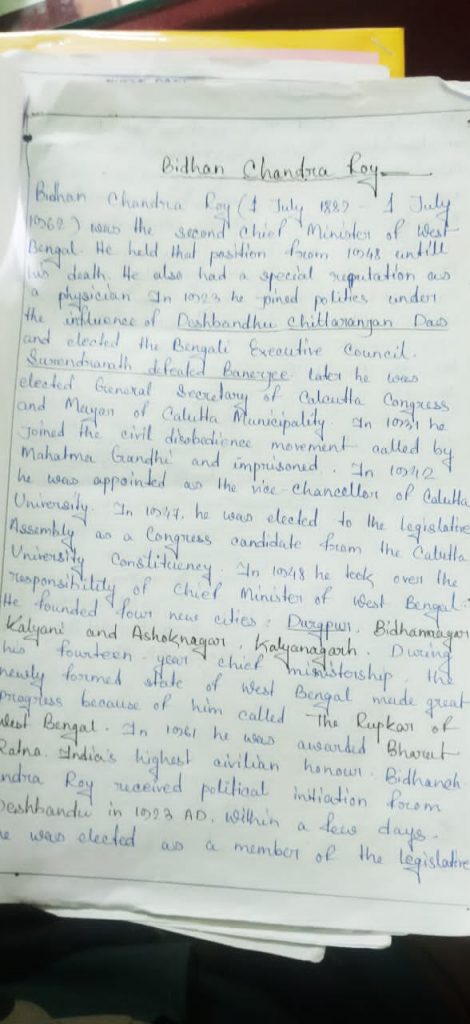 Bidhan Chandra Roy
Bidhan Chandra Roy (1 July 1882 - 1 July
1962) was the second Chief Minister of West
Bengal. He held that position from 1948 untill
his death. He also had a special reputation as
a physician. In 1923 he joined politics under
the influence of Deshbandhu Chittaranjan Das
and elected the Bengali Executive Council.
Surendranath defeated Banerjee. later he was
elected General Secretary of Calcutta Congress
and Mayor of Calutta Municipality. In 1931 he
Joined the civil disobedience movement called by
Mahatma Gandhi and imprisoned. In 1942
he was appointed as the vice-chancellor of Calutta
University. In 1947, he was elected to the legislative
Assembly as a Congress candidate from the Calutta
University Constituency. In 1948 he took over the
responsibility of Chief Minister of West Bengal.
He founded four new cities: Durgpur, Bidhannagar
Kalyani and Ashoknagar, Kalyanagarh. During
his fourteen year chief ministorship, the
newly formed state of West Bengal made great
progress because of him called The Rupkar of
West Bengal. In 1961 he was awarded Bharat
Ratna. India's highest civilian honour. Bidhaneh
ndra Roy received political initiation from
Deshbandu in 1923 AD. Within a few days.
he was elected as a member of the legislative